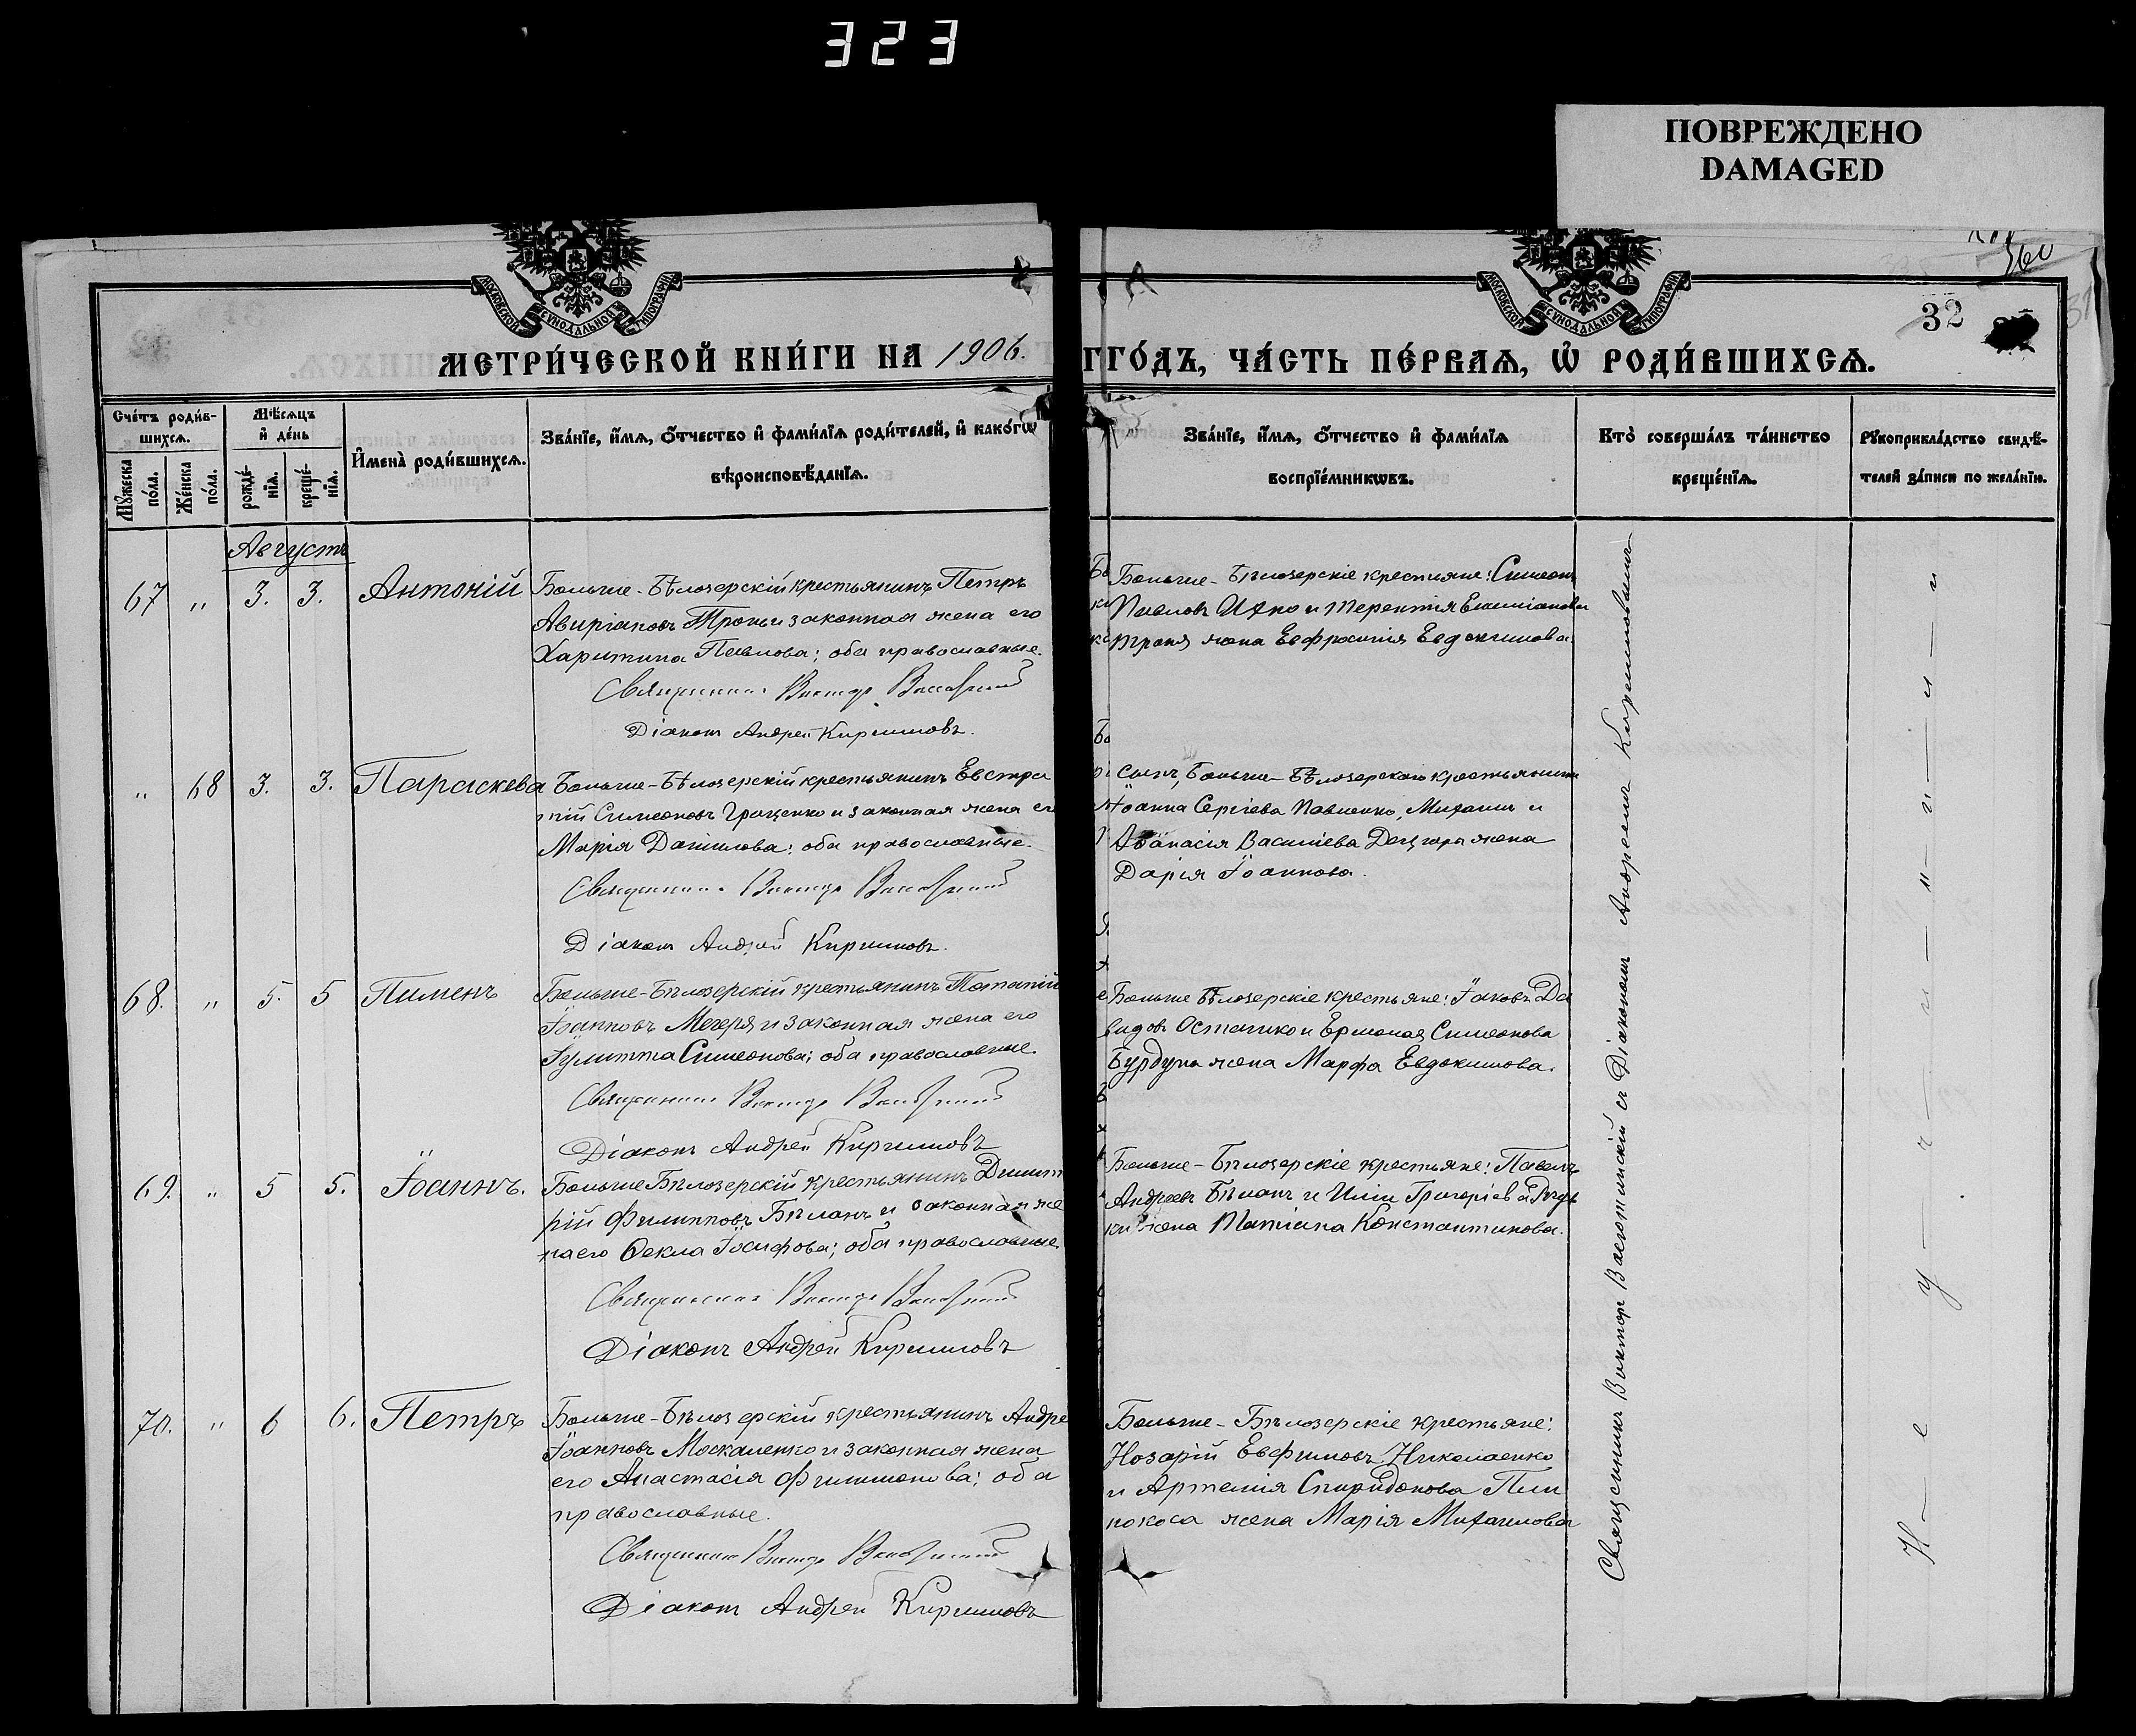 323
ПОВРЕЖДЕНО
DAMAGED
360
32
МОСКОВСКОЙ СУНОДАЛЬНОЙ ТИПОГРАФІИ
МОСКОВСКОЙ СУНОДАЛЬНОЙ ТИПОГРАФІИ
МЕТРИ́ЧЕСКОЙ КНИ́ГИ НА 1906.
ГО́ДЪ, ЧА́СТЬ ПЕ́РВАѦ, Ѡ҆ РОДИ́ВШИХСѦ.
Сче́тъ роди́в-
шихсѧ.
Мꙋ́жеска по́ла.
Же́нска по́ла.
Мѣ́сѧцъ
и҆ де́нь
рожде́-
нїѧ.
креще́-
нїѧ.
И҆мена̀ роди́вшихсѧ.
Зва́нїе, и҆́мѧ, ѻ҆́тчество и҆ фами́лїѧ роди́телей, и҆ како́гѡ
вѣроисповѣ́данїѧ.
Зва́нїе, и҆́мѧ, ѻ҆́тчество и҆ фами́лїѧ
воспрїе́мникѡвъ.
Кто̀ соверша́лъ та́инство
креще́нїѧ.
Рꙋкоприкла́дство свидѣ́-
телей за́писи по жела́нїю.
Августъ
67 " 3. 3. Антоній
Больше-Бѣлозерскій крестьянинъ Петръ
Авиріановъ Тронь и законная жена его
Харитина Павлова; оба православные.
Священникъ Викторъ
Діаконъ Андрей Кирилловъ.
Больше-Бѣлозерскіе крестьяне: Симеонъ
Павловъ и Терентія Емиліанова
жена Евфросинія Евдокимова.
" 68 3. 3. Параскева
Больше-Бѣлозерскій крестьянинъ Евстра
тій Симеоновъ Гроценко и законная жена его
Марія Даниилова; оба православные.
Священникъ Викторъ
Діаконъ Андрей Кирилловъ.
сынъ, Больше-Бѣлозерскаго крестьянина
Іоанна Сергіева Павленко, Михаилъ и
Аѳанасія Василіева жена
Дарія Іоаннова.
68. " 5. 5 Пименъ
Больше-Бѣлозерскій крестьянинъ Потапій
Іоанновъ Мегеря и законная жена его
Іулитта Симеонова; оба православные.
Священникъ Викторъ
Діаконъ Андрей Кирилловъ
Больше Бѣлозерскіе крестьяне: Іаковъ Да
видовъ Остапико и Ермолая Симеонова
Бурдуна жена Марфа Евдокимова.
69. " 5 5. Іоаннъ.
Больше Бѣлозерскій крестьянинъ Димит
рій Филипповъ Бѣланъ и законная же
на его Ѳекла Іосифова; оба православные.
Священникъ Викторъ
Діаконъ Андрей Кирилловъ
Больше-Бѣлозерскіе крестьяне: Павелъ
Андреевъ Бѣланъ и Иліи Григоріева
жена Татіана Константинова.
70. " 6 6. Петръ
Больше-Бѣлозерскій крестьянинъ Андре
Іоанновъ Москаленко и законная жена
его Анастасія Филимонова; оба
православные.
Священникъ Викторъ
Діаконъ Андрей Кирилловъ
Больше-Бѣлозерскіе крестьяне:
Назарій Евфимовъ Николаенко
и Артемія Спиридонова Пли
покоса жена Марія Михаилова
Священникъ Викторъ съ Діакономъ Андреемъ Кирилловымъ
Н — е